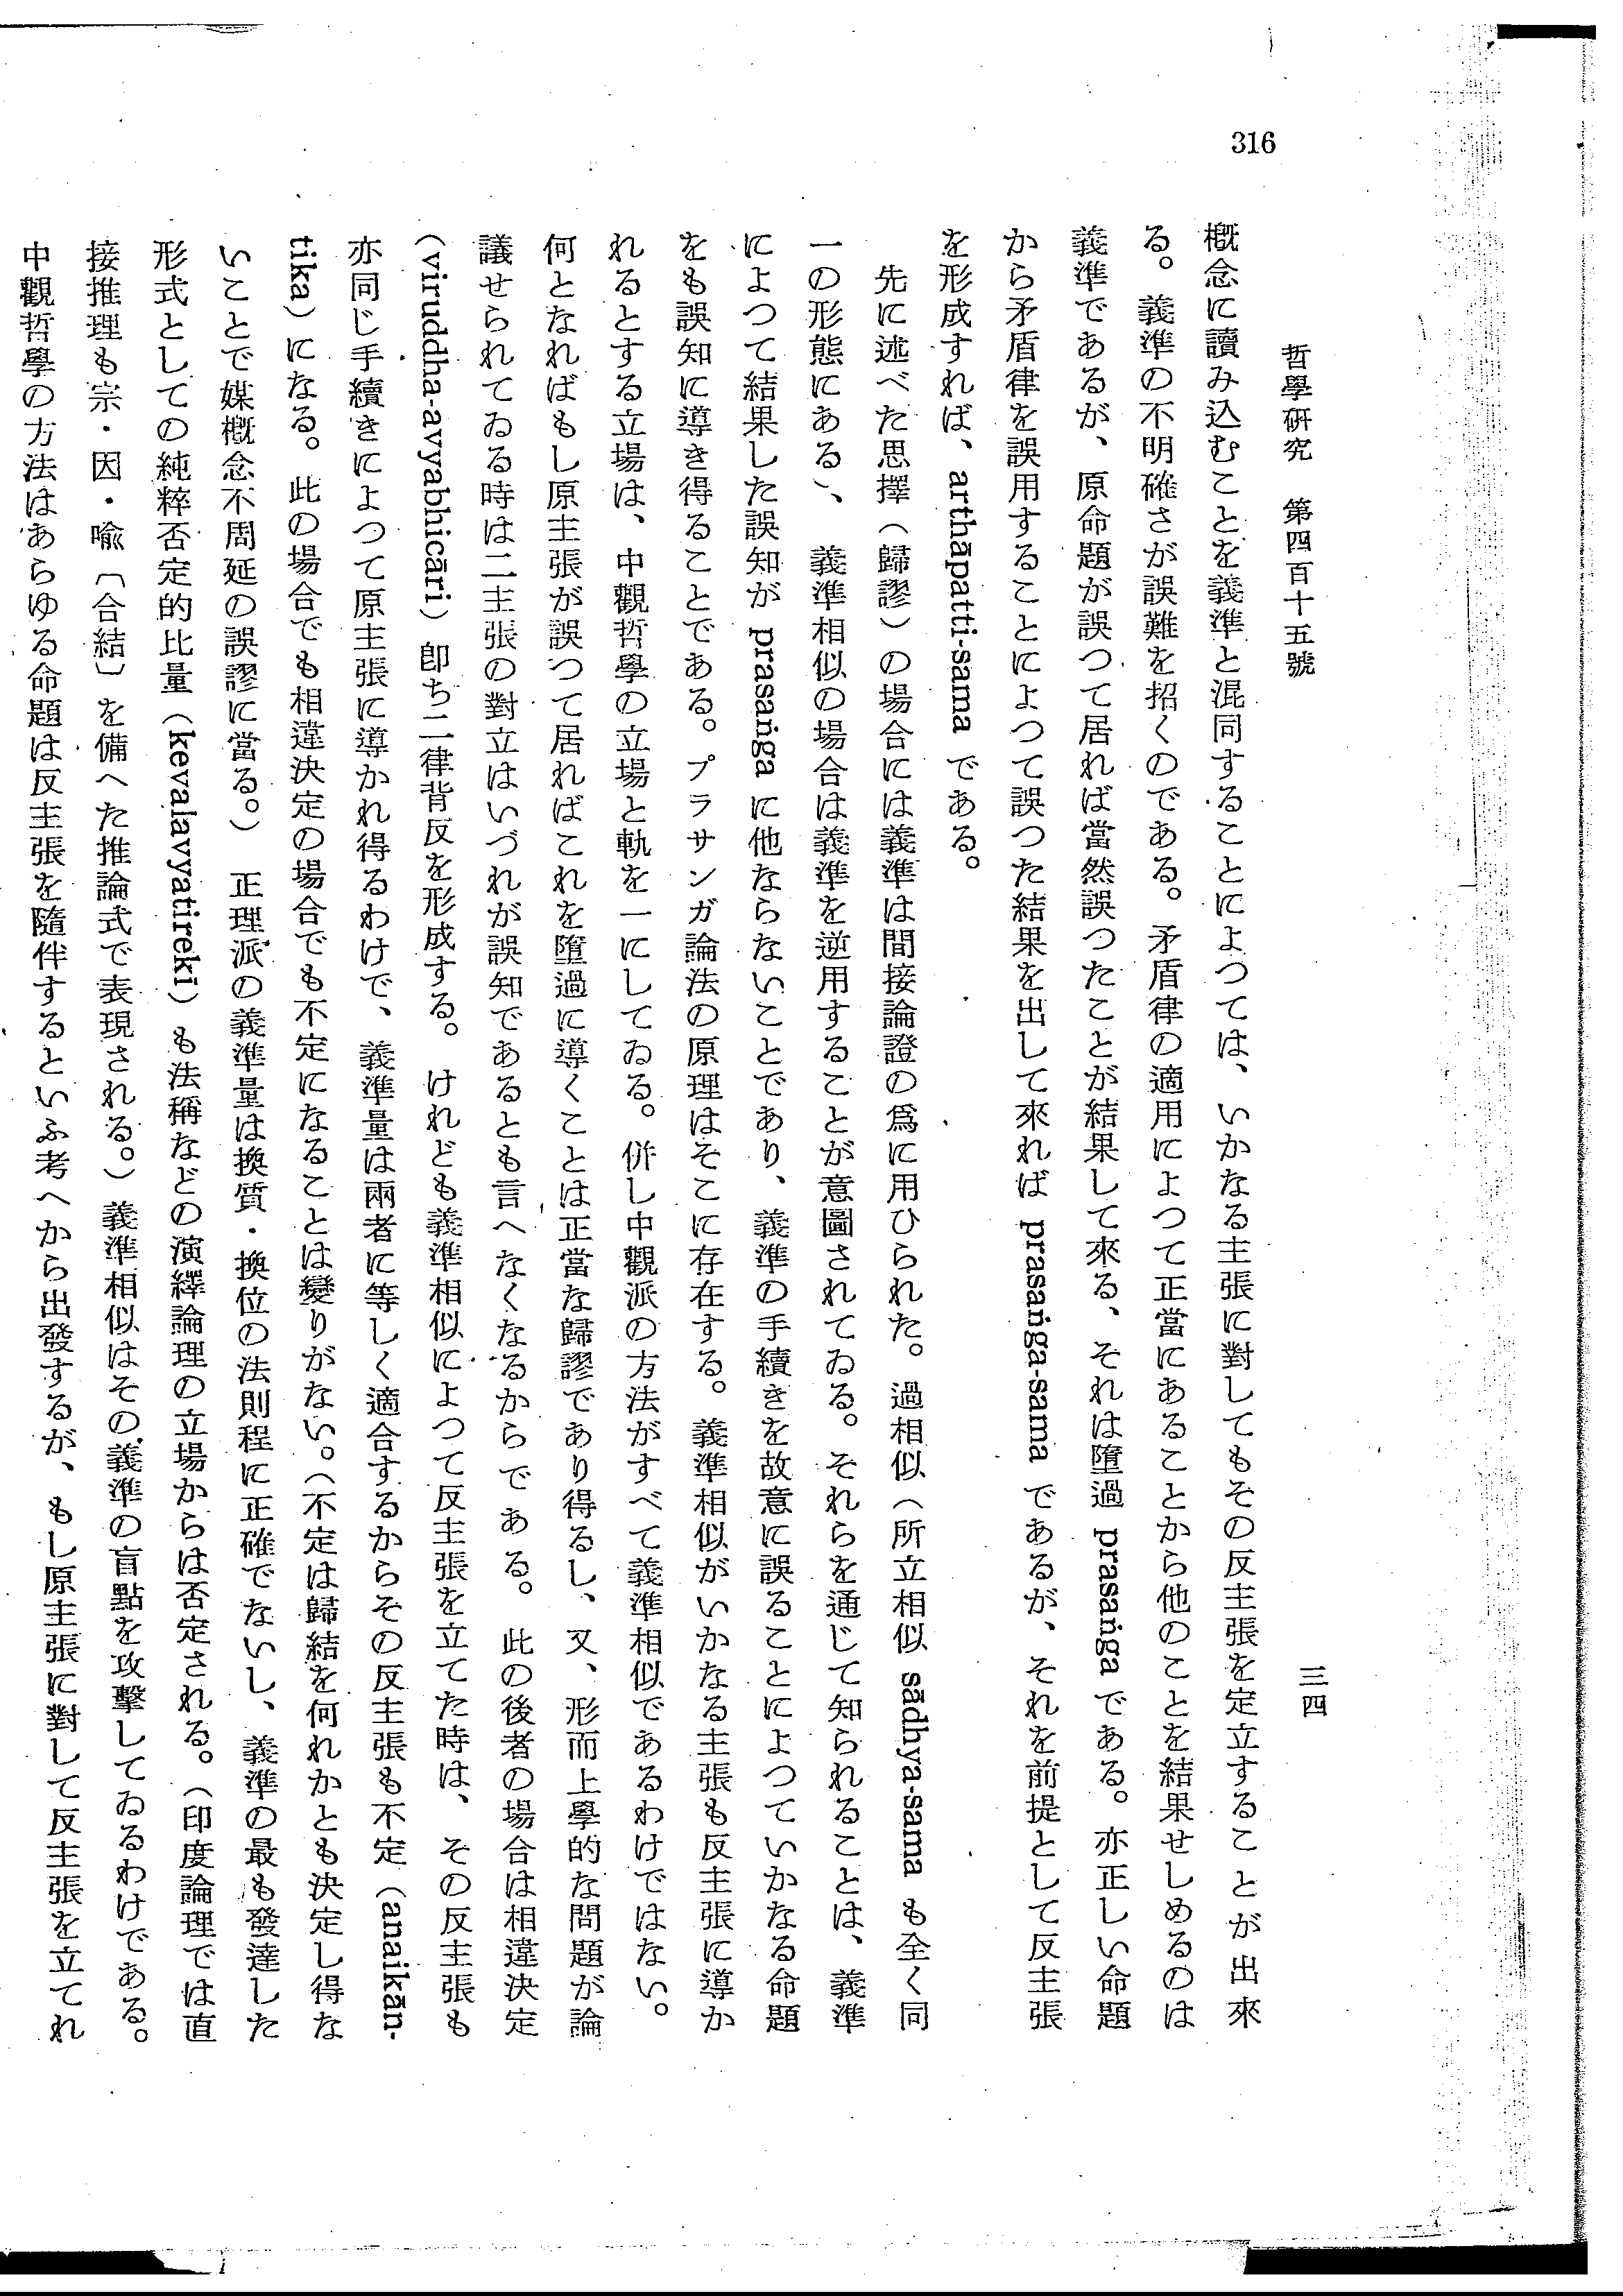 316
哲學硏究　第四百十五號
三四
槪念に讀み込むことを義準と混同することによつては、いかなる主張に對してもその反主張を定立することが出來
る。義準の不明確さが誤難を招くのである。矛盾律の適用によつて正當にあることから他のことを結果せしめるのは
義準であるが、原命題が誤つて居れば當然誤つたことが結果して來る、それは墮過 prasaṅga である。亦正しい命題
から矛盾律を誤用することによつて誤つた結果を出して來れば prasaṅga-sama であるが、それを前提として反主張
を形成すれば、arthāpatti-sama である。
先に述べた思擇（歸謬）の場合には義準は間接論證の爲に用ひられた。過相似（所立相似 sādhya-sama も全く同
一の形態にある）、義準相似の場合は義準を逆用することが意圖されてゐる。それらを通じて知られることは、義準
によつて結果した誤知が prasaṅga に他ならないことであり、義準の手續きを故意に誤ることによつていかなる命題
をも誤知に導き得ることである。プラサンガ論法の原理はそこに存在する。義準相似がいかなる主張も反主張に導か
れるとする立場は、中觀哲學の立場と軌を一にしてゐる。併し中觀派の方法がすべて義準相似であるわけではない。
何となればもし原主張が誤つて居ればこれを墮過に導くことは正當な歸謬であり得るし、又、形而上學的な問題が論
議せられてゐる時は二主張の對立はいづれが誤知であるとも言へなくなるからである。此の後者の場合は相違決定
（viruddha-avyabhicāri）卽ち二律背反を形成する。けれども義準相似によつて反主張を立てた時は、その反主張も
亦同じ手續きによつて原主張に導かれ得るわけで、義準量は兩者に等しく適合するからその反主張も不定（anaikān-
tika）になる。此の場合でも相違決定の場合でも不定になることは變りがない。（不定は歸結を何れかとも決定し得な
いことで媒槪念不周延の誤謬に當る。）正理派の義準量は換質・換位の法則程に正確でないし、義準の最も發達した
形式としての純粹否定的比量（kevalavyatirekī）も法稱などの演繹論理の立場からは否定される。（印度論理では直
接推理も宗・因・喩〔合結〕を備へた推論式で表現される。）義準相似はその義準の盲點を攻擊してゐるわけである。
中觀哲學の方法はあらゆる命題は反主張を隨伴するといふ考へから出發するが、もし原主張に對して反主張を立てれ